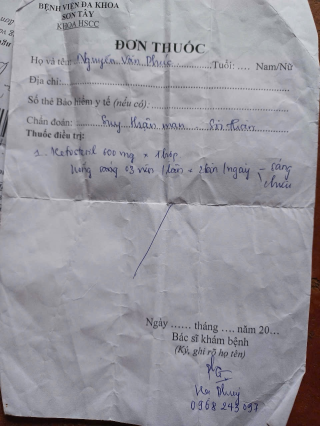 BỆNH VIỆN ĐA KHOA
SƠN TÂY
KHOA HSCC
ĐƠN THUỐC
Họ và tên: Nguyễn Văn Phúc Tuổi: .... Nam/Nữ
Địa chỉ:
Số thẻ Bảo hiểm y tế (nếu có)
Chẩn đoán: Suy thận mạn
Thuốc điều trị:
1. Ketosteril 600 mg x 1 hộp
Uống 03 viên 1 lần x 2 lần 1 ngày - sáng
chiều
Ngày ...... tháng .... năm 20...
Bác sĩ khám bệnh
(Ký, ghi rõ họ tên)